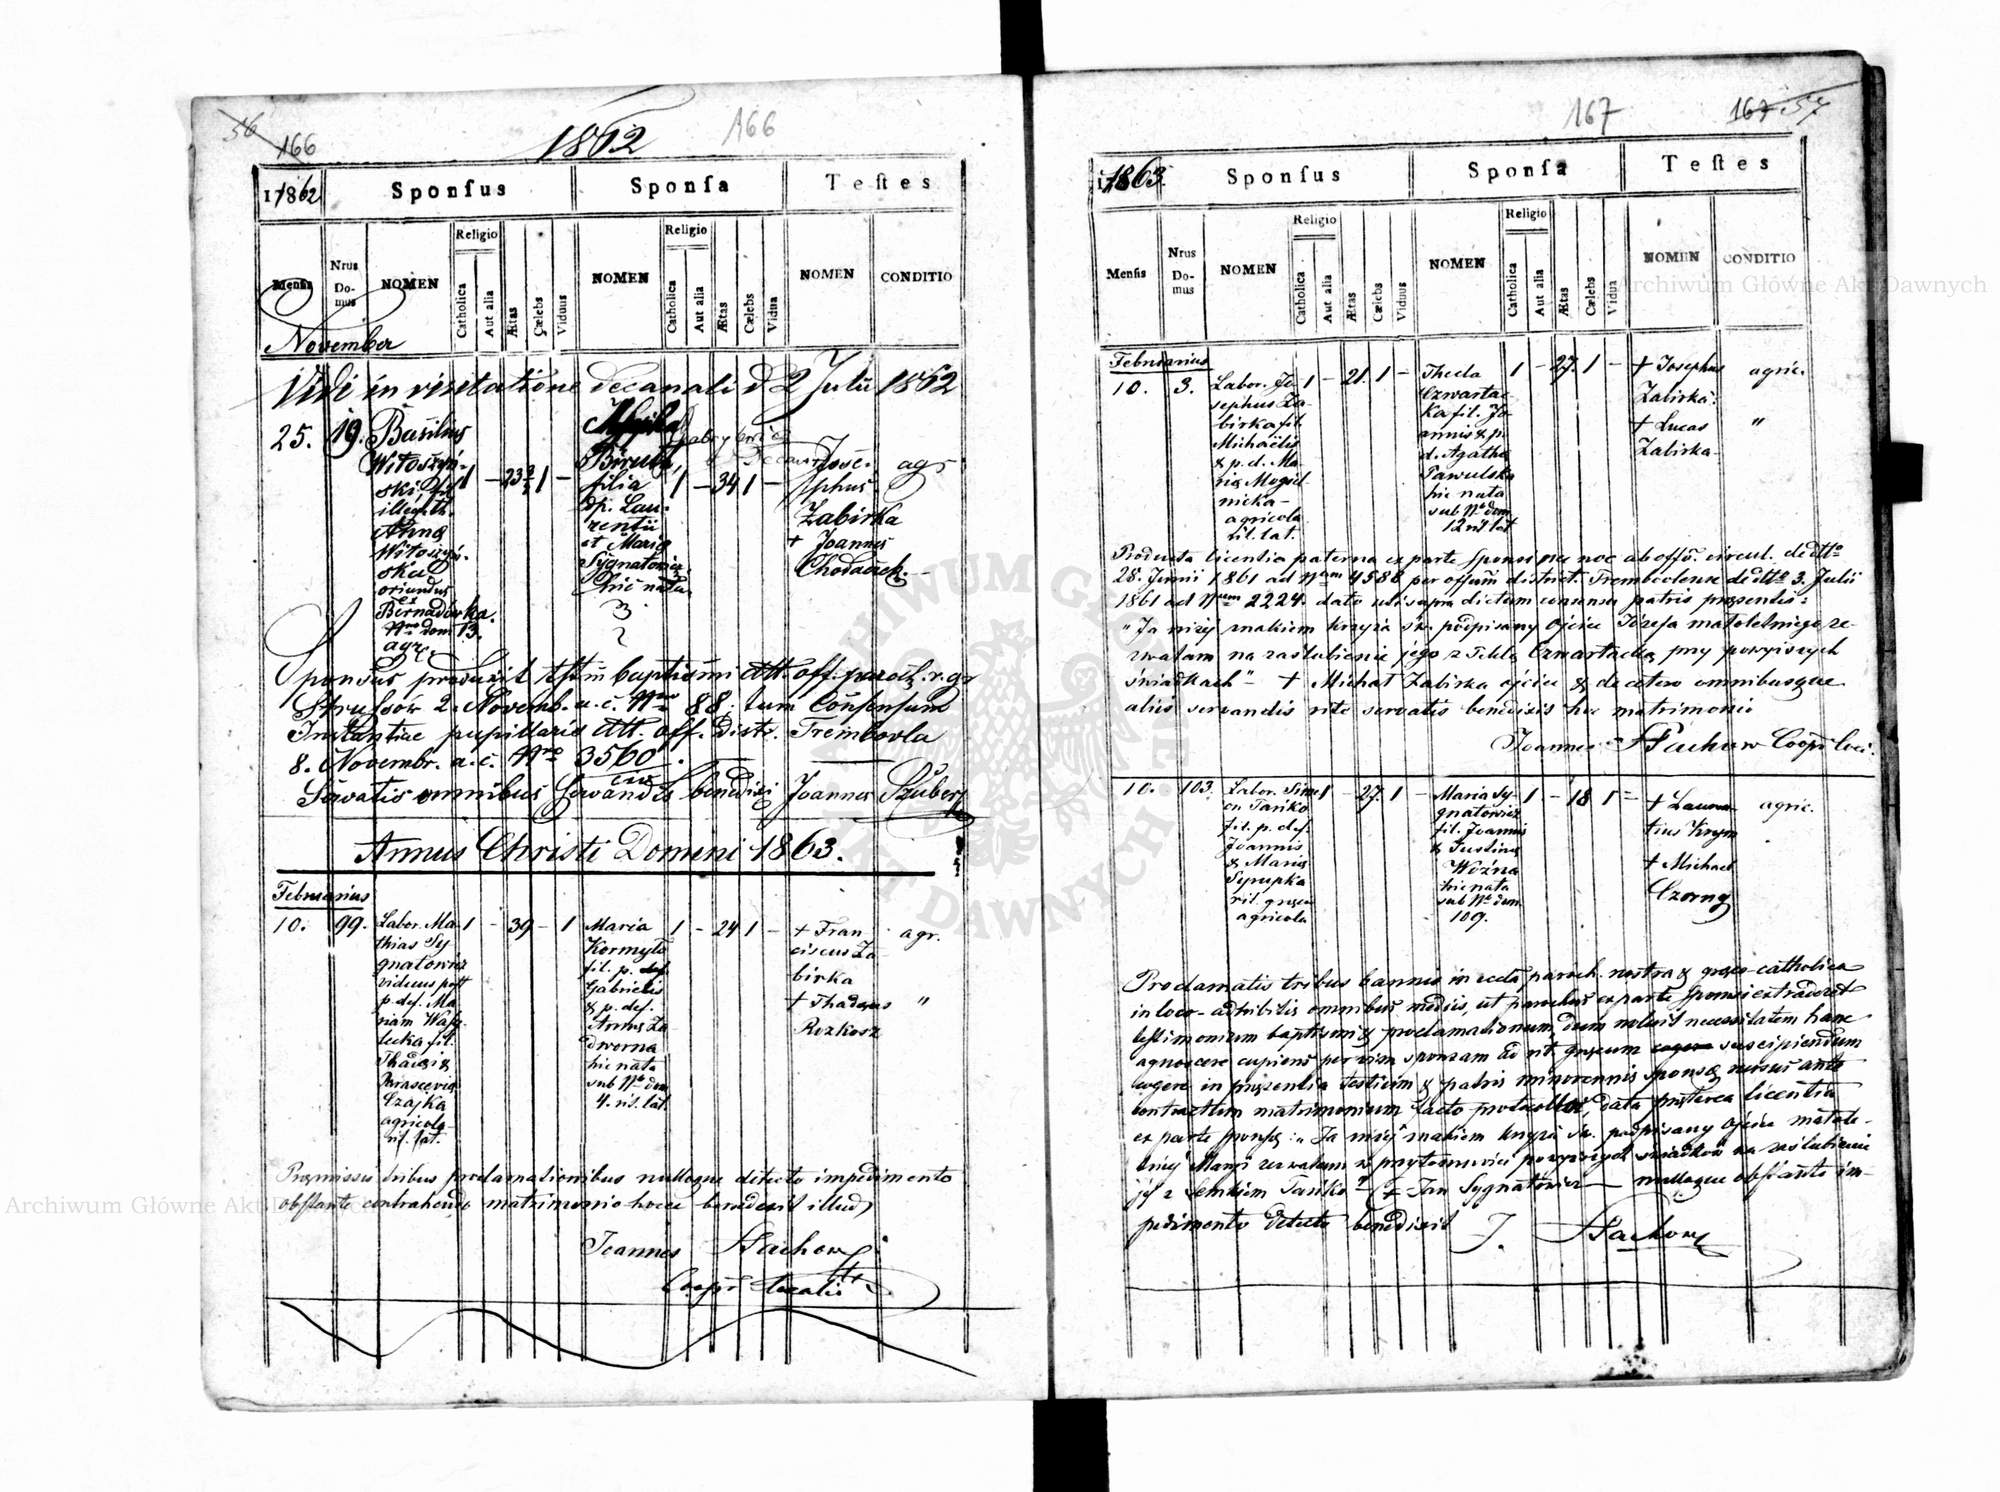 56
166
1862
166
1862
Sponſus
Sponſa
Teſtes
Menſis
Nrus Domus
NOMEN
Religio
Catholica
Aut alia
Ætas
Cælebs
Viduus
NOMEN
Religio
Catholica
Aut alia
Ætas
Cælebs
Vidua
NOMEN
CONDITIO
November
Vidi in visitatione decanali d 2 Julii 1862
25. 19. Basilius
Witoszyń-
ski fil
illegith.
Anna
Witoszyń-
ska
oriundus
ex
Bernadówka.
Nro dom 13.
agr.
1 - 23 1 -
Boruth,
filia
Lau-
rentii
et Maria
Sygnatowicz.
hic nata.
1 - 34 1 -
Jose-
phus
Zabirka
+ Joannes
Chodaczek.
agr
Sponsus produxit testm baptismi dtt. off. paroch. r. gr
Strussów 2. Novemb. a. c. Nro 88. tum Consensum
Instantiae pupillaris dtt. off. Distr. Trembovla
8. Novembr. a. c. Nro 3560.
Servatis omnibus servandis benedixi Joannes Szuber
Annus Christi Domini 1863.
Februarius
10. 99. Labor. Ma-
thias Sy-
gnatowicz
viduus post
p. def. Ma-
riam Wasy-
lecka fil.
Thadei &
Parascevia
Czajka
agricola
rit. lat.
1 - 39 - 1
Maria
Kormyło
fil. p. def.
Gabrielis
& p. def.
Anna Za-
dworna
hic nata
sub No dom
4. rit. lat.
1 - 24 1 -
+ Fran
ciscus Za-
birka
+ Thadeus
Rozkosz
agr.
"
Præmissis tribus proclamationibus nulloque detecto impedimento
obstante contrahendo matrimonio hocce benedixit illud
Joannes Stachow
Coop. localis
167
167 57
1863.
Sponſus
Sponſa
Teſtes
Menſis
Nrus Domus
NOMEN
Religio
Catholica
Aut alia
Ætas
Cælebs
Viduus
NOMEN
Religio
Catholica
Aut alia
Ætas
Cælebs
Vidua
NOMEN
CONDITIO
Februarius
10. 3. Labor. Jo-
sephus Za-
birka fil.
Michaelis
& p. d. Ma-
ria Mogiel
nicka -
agricola
rit. lat.
1 - 21. 1 -
Thecla
Czwartac-
ka fil. Jo-
annis & p.
d. Agatha
Pawulska
hic nata
sub No dom
12 rit lat
1 - 27. 1 -
+ Josephus
Zabirka.
+ Lucas
Zabirka
agric.
"
Producta licentia paterna ex parte sponsi nec non ab offo. circul. de dtto
28. Junii 1861 ad Num 4588 per offum district. Trembovlense de dtto 3. Julii
1861 ad Num 2224. dato ubi supra dictum consensu patris præsentis:
"Ja niżej znakiem krzyża św. podpisany Ojciec Józefa małoletniego ze-
zwalam na zaślubienie jego z Teklą Czwartacką przy powyższych
świadkach" - + Michał Zabirka ojciec & de cetero omnibusque
aliis servandis rite servatis benedixit hoc matrimonio
Joannes Stachow Coop. loci.
10. 103. Labor. Sime
on Tańko
fil. p. def.
Joannis
& Maria
Syrupka
rit. græco
agricola
1 - 27. 1 -
Maria Sy-
gnatowicz
fil. Joannis
& Justina
Woźna
hic nata
sub No dom
109.
1 - 18 1 -
+ Lauren-
tius Krym
+ Michael
Czorny
agric.
Proclamatis tribus bannis in eccla paroch. nostra & græco-catholica
in loco - adhibitis omnibus mediis, ut parochus ex parte sponsi extraderet
testimonium baptismi & proclamationum, dum noluit necessitatem hanc
agnoscere cupiens per vim sponsam ad rit. græcum suscipiendum
cogere in præsentia testium & patris minorennis sponsæ rursus ante
contractum matrimonium facto protocollo, data præterea licentia
ex parte sponsæ: "Ja niżej znakiem krzyża św. podpisany Ojciec małole-
tniej Maryi zezwalam w przytomności powyższych świadków na zaślubienie
jej z Semkiem Tańko" + Jan Sygnatowicz - nulloque obstante im-
pedimento detecto benedixit J. Stachow
Archiwum Główne Akt Dawnych
Archiwum Główne Akt Dawnych
ARCHIWUM GŁÓWNE AKT DAWNYCH